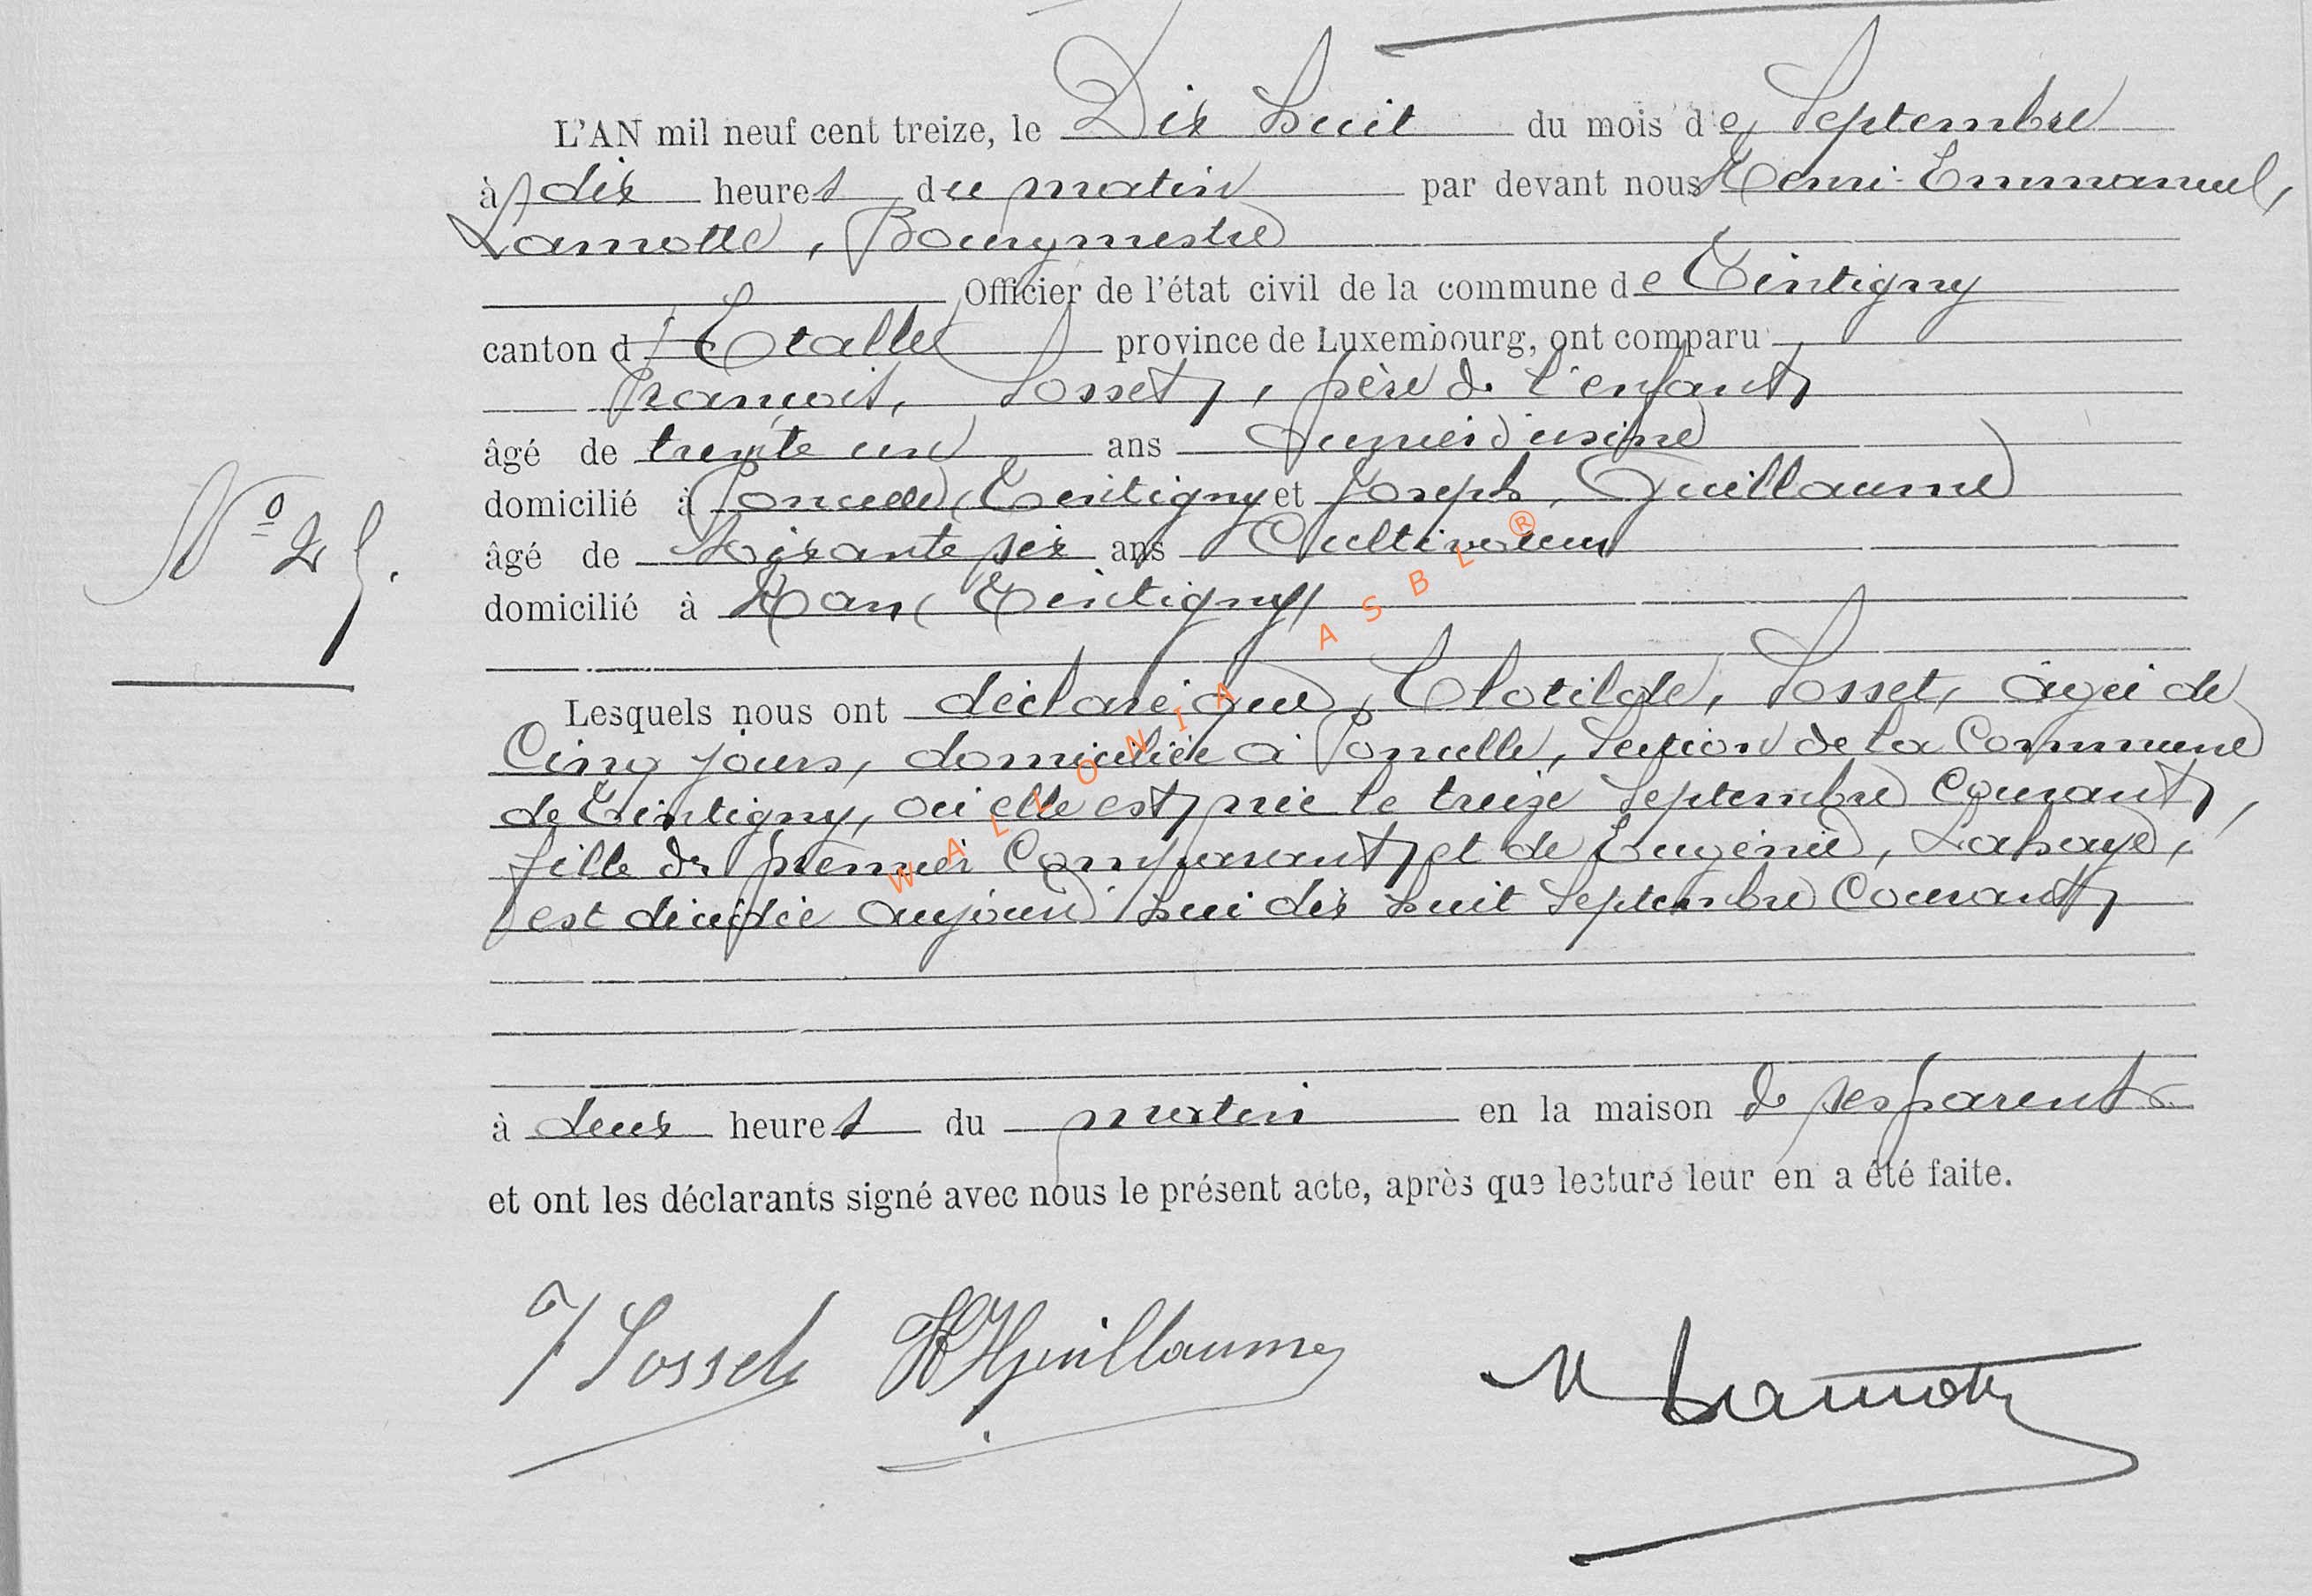 L'AN mil neuf cent treize, le Dix huit du mois de Septembre
à dix heures du matin par devant nous Henri-Emmanuel,
Lamotte, Bourgmestre
Officier de l'état civil de la commune de Tintigny
canton d'Etalle province de Luxembourg, ont comparu
François, Sosset, père de l'enfant
âgé de trente un ans Ouvrier d'usine
domicilié à Poncelle (Tintigny et Joseph, Guillaume
âgé de Soixante six ans Cultivateur
domicilié à Han (Tintigny)
N° 25.
Lesquels nous ont déclaré que, Clotilde, Sosset, âgée de
Cinq jours, domiciliée à Poncelle, Section de la Commune
de Tintigny, où elle est née le treize Septembre Courant,
fille du premier Comparant et de Eugénie, Lahaye,
est décédée aujourd'hui dix huit Septembre Courant
à deux heures du matin en la maison de ses parents
et ont les déclarants signé avec nous le présent acte, après que lecture leur en a été faite.
F Sosset Guillaume Lamotte
WALLONIA ASBL ®